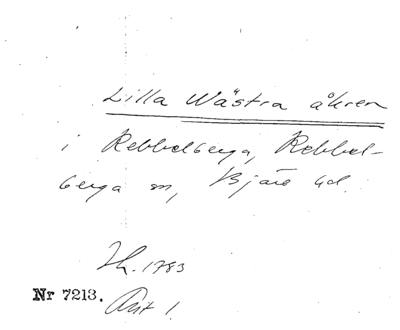 Lilla Wästra åkren
i Rebbelberga, Rebbel-
berga sn, Bjäre hd.
Jh. 1783
Nr 7213.
Akt 1.